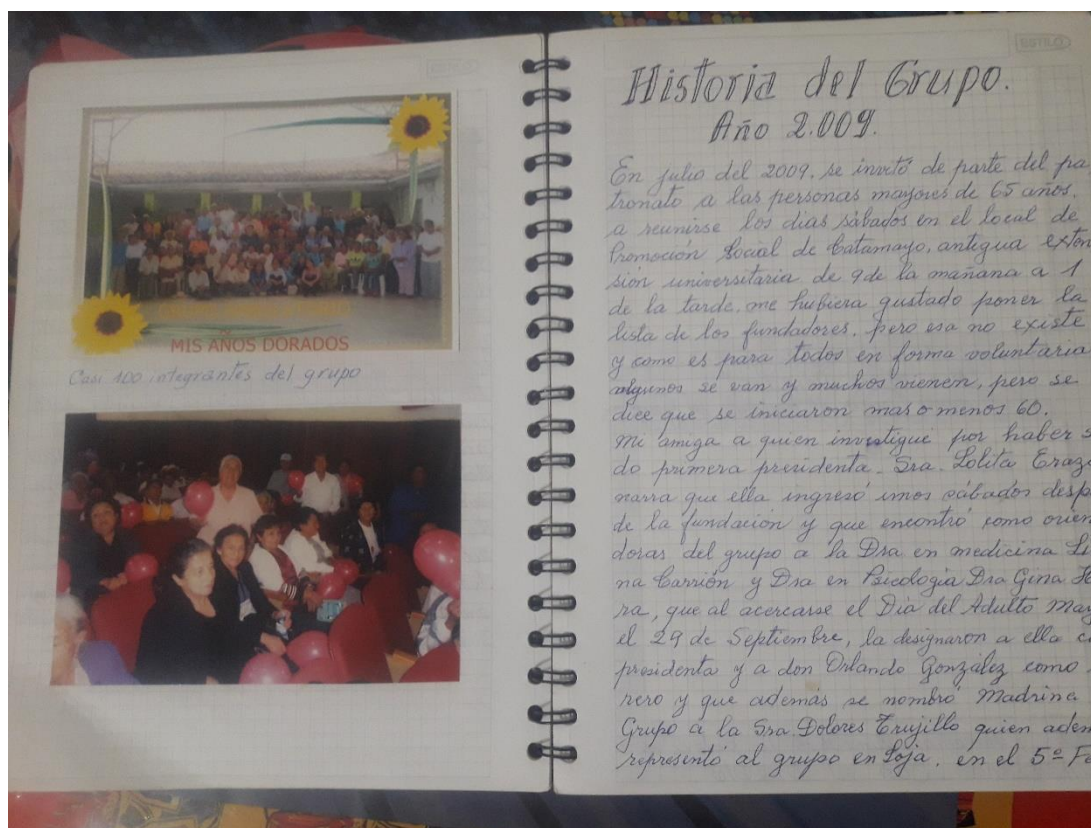 ESTILO
MIS AÑOS DORADOS
Casi 100 integrantes del grupo
ESTILO
Historia del Grupo.
Año 2.009.
En julio del 2009, se invitó de parte del pa
tronato a las personas mayores de 65 años.
a reunirse los dias sábados en el local de
Promoción Social de Catamayo, antigua exten
sión universitaria de 9 de la mañana a 1
de la tarde, me hubiera gustado poner la
lista de los fundadores, pero esa no existe
y como es para todos en forma voluntaria
algunos se van y muchos vienen, pero se
dice que se iniciaron mas o menos 60.
Mi amiga a quien investigué por haber s
do primera presidenta. Sra. Lolita Erazo
narra que ella ingresó unos sábados desp
de la fundación y que encontró como orien
doras del grupo a la Dra en medicina Li
na Carrión y Dra en Psicologia Dra Gina
ra, que al acercarse el Dia del Adulto May
el 29 de Septiembre, la designaron a ella c
presidenta y a don Orlando González como
nero y que además se nombró Madrina
Grupo a la Sra. Dolores Trujillo quien adem
representó al grupo en Loja, en el 5º F